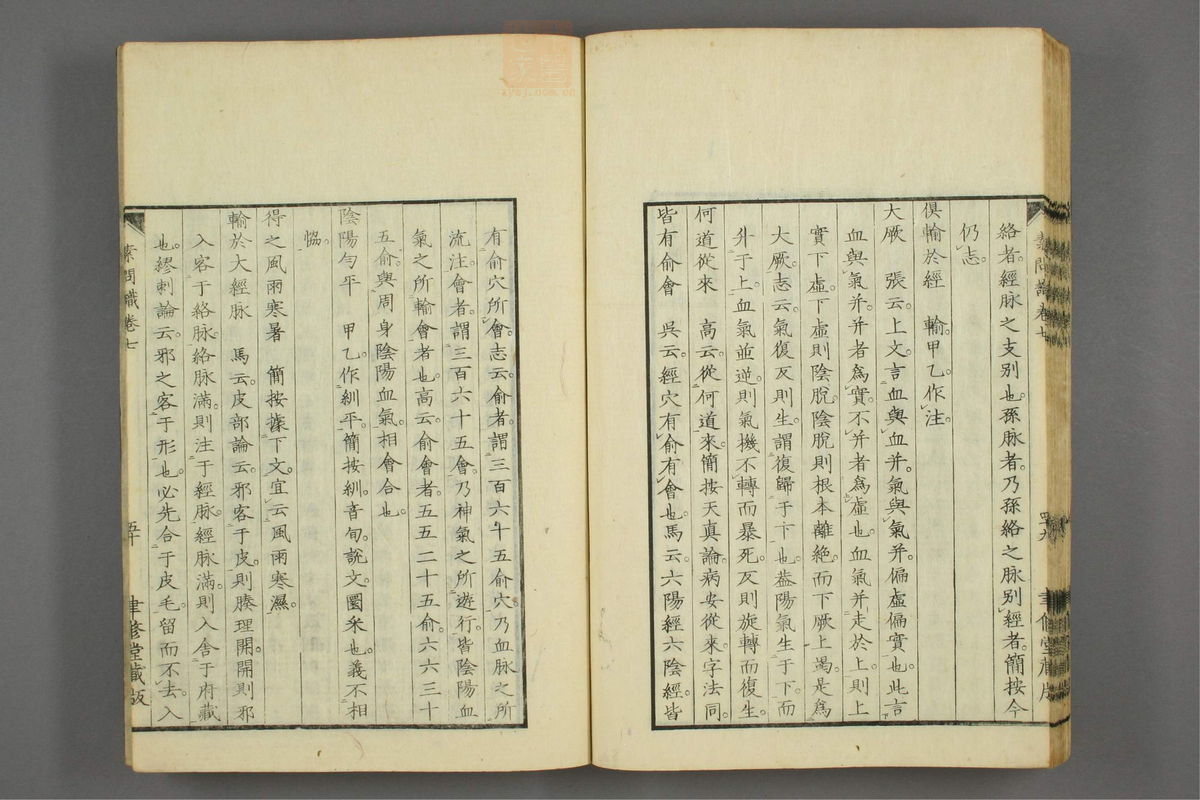 絡者。經脉之支别也。孫脉者。乃孫絡之脉别經者。簡按今
仍志。
俱輸於經　輸。甲乙作注。
大厥　張云。上文。言血與血并。氣與氣并。偏虛偏實也。此言
血與氣并。并者爲實。不并者爲虛也。血氣并走於上。則上
實下虛。下虛則陰脫。陰脫則根本離絶。而下厥上竭。是爲
大厥。志云。氣復反則生。謂復歸于下也。蓋陽氣生于下。而
升于上。血氣並逆。則氣機不轉而暴死。反則旋轉而復生。
何道從來　高云。從何道來。簡按天真論。病安從來。字法同。
皆有俞會　吳云。經穴有俞有會也。馬云。六陽經六陰經。皆
有俞穴所會。志云。俞者。謂三百六十五俞穴。乃血脉之所
流注。會者。謂三百六十五會。乃神氣之所遊行。皆陰陽血
氣之所輸會者也。高云。俞會者。五五二十五俞。六六三十
五俞。與周身陰陽血氣。相會合也。
陰陽匀平　甲乙。作紃平。簡按紃。音旬。說文。圜采也。義不相
恊。
得之風雨寒暑　簡按據下文。宜云風雨寒濕。
輸於大經脉　馬云。皮部論云。邪客于皮。則腠理開。開則邪
入客于絡脉。絡脉滿。則注于經脉。經脉滿。則入舍于府藏
也。繆刺論云。邪之客于形也。必先舍于皮毛。留而不去。入
素問識卷七
五十
聿修堂藏版
素問識卷七
四十九
聿修堂藏版